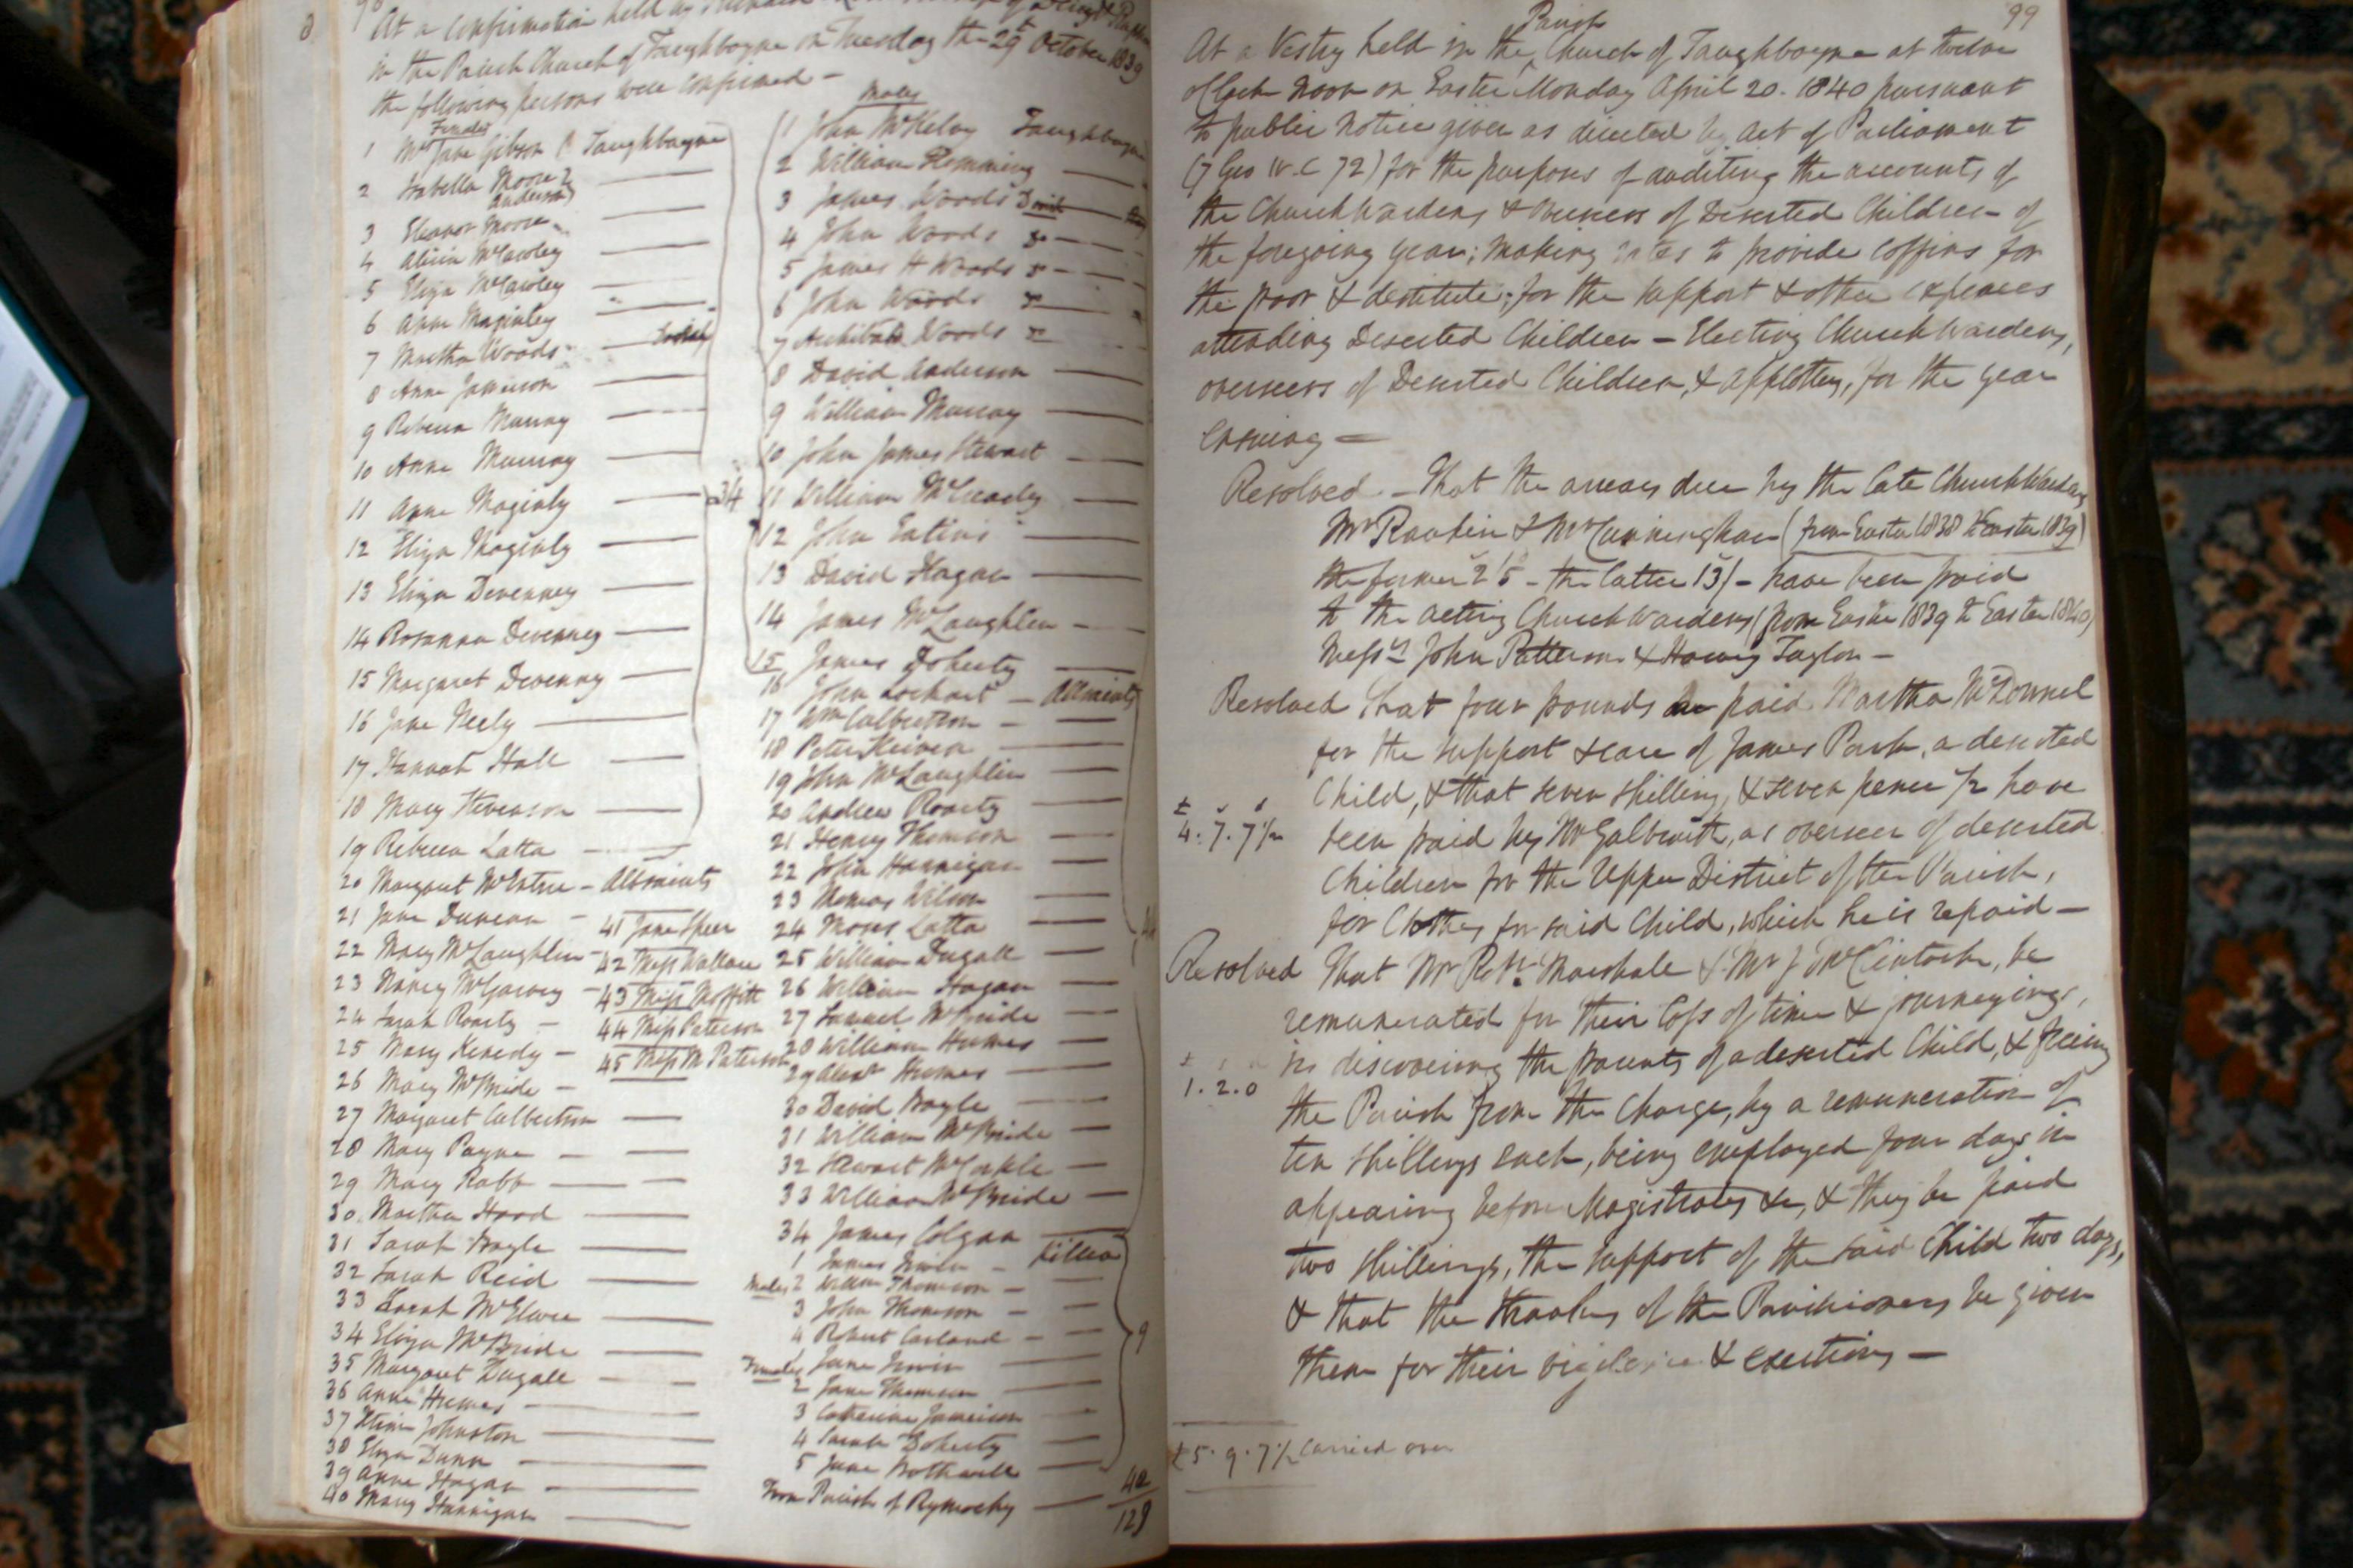 98
At a Confirmation held by
in the Parish Church of Taughboyne on Tuesday the 29t October 1839
the following persons were confirmed –
Females
1 Mrs Jane Gibson Taughboyne
2 Isabella Moore
Anderson
3 Eleanor Moore
4 Alicia McCawley
5 Eliza McCawley
6 Anne Maginley
7 Martha Woods
8 Anne Jamison
9 Rebecca Murray
10 Anne Murray
11 Anne Maginly
12 Eliza Maginly
13 Eliza Devenney
14 Rosanna Devenney
15 Margaret Devenny
16 Jane Neely
17 Hannah Hall
18 Mary Stevenson
19 Rebecca Latta
20 Margaret McEntire – Allsaints
21 Jane Duncan –
22 Mary McLaughlin
23 Nancy McGarvey
24 Sarah Roarty –
25 Mary Kenedy –
26 Mary McBride –
27 Margaret Culbertson
28 Mary Payne
29 Mary Robb
30 Martha Hood
31 Sarah Boyle
32 Sarah Reid
33 Sarah McElwee
34 Eliza McBride
35 Margaret Dugall
36 Anne Humes
37 Johnston
38 Eliza Dunn
39 Anne Hogan
40 Mary Hannigan
41 Jane Speer
42 Miss Wallace
43 Miss Moffitt
44 Miss Paterson
45 Miss M Paterson
34
Males
1 John McKelvy Taughboyne
2 William Flemming
3 James Woods David
4 John Woods
5 James H Woods
6 John Woods
7 Archibald Woods
8 David Anderson
9 William Murray
10 John James Stewart
11 William McCready
12 John Eakins
13 David Hagan
14 James McLaughlin –
15 James Doherty
16 John Lockart – Allsaints
17 Wm Culbertson –
18 Peter
19 John McLaughlin
20 Andrew Roarty
21 Henry Thomson
22 John Hannigan
23 Thomas Wilson
24 Moses Latta
25 William Dugall
26 William Hogan
27 Samuel McBride
28 William Humes
29 Alexr Humes
30 David Boyle
31 William McBride
32 Stewart McCorkle
33 William McBride
34 James Colgan
1 James Irwin – Killea
Males 2 William Thomson –
3 John Thomson –
4 Robert Carland –
Females 1 Jane Irwin
2 Jane Thomson
3 Catherine Jamison
4 Sarah Doherty
5 Jane Rothwell
9
From Parish of Raymochy
129
99
Parish
At a Vestry held in the ^ Church of Taughboyne at twelve
o'Clock noon on Easter Monday April 20. 1840 pursuant
to public notice given as directed by act of Parliament
(7 Geo IV. C 72) for the purposes of auditing the accounts of
the ChurchWardens & Overseers of Deserted Children of
the foregoing year; making rates to provide Coffins for
the poor & destitute; for the support & other expences
attending Deserted Children – Electing ChurchWardens,
overseers of Deserted Children, & applotters, for the year
ensuing –
Resolved – That the arrears due by the late ChurchWardens
Mr Rankin & Mr Cunningham (from Easter 1838 to Easter 1839)
the former 2/6 – the latter 13/– have been paid
to the acting ChurchWardens (from Easter 1839 to Easter 1840)
Messrs John Patterson & Harvey Taylor –
Resolved That four pounds be paid Martha McConnel
for the support & care of James Park, a deserted
Child, & that seven shillings & seven pence 1/2 have
£ s d
4. 7. 7 1/2 been paid by Mr Galbraith, as overseer of deserted
Children for the Upper District of the Parish,
for Clothes for said Child, which he is repaid –
Resolved That Mr Rt Marshall & Mr J McClintock, be
remunerated for their loss of time & journeyings,
in discovering the parents of a deserted Child, & freeing
£ s d
1. 2. 0 the Parish from the Charge, by a remuneration of
ten shillings each, being employed four days in
appearing before Magistrates &c, & they be paid
two shillings, the support of the said Child two days,
& that the thanks of the Parishioners be given
them for their vigilance & exertions –
£5. 9. 7 1/2 Carried over